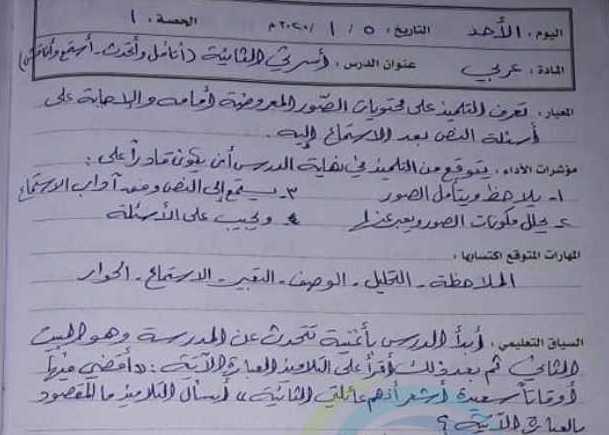 اليوم : الأحد التاريخ : ٥ / ١ / ٢٠٢٠م الحصة : ١
المادة : عربي عنوان الدرس : أسرتي الثانية (أتأمل وأتحدث - أستمع وأناقش)
المعيار : تعرف التلميذ على محتويات الصور المعروضة أمامه والإجابة على
أسئلة النص بعد الاستماع إليه .
مؤشرات الأداء : يتوقع من التلميذ في نهاية الدرس أن يكون قادراً على :
١- يلاحظ ويتأمل الصور ٣- يستمع إلى النص وفق آداب الاستماع
٢- يحلل مكونات الصور ويعبر عنها ٤- ويجيب على الأسئلة
المهارات المتوقع اكتسابها :
الملاحظة - التحليل - الوصف - التعبير - الاستماع - الحوار
السياق التعليمي : أبدأ الدرس بأغنية تتحدث عن المدرسة وهو البيت
الثاني ثم بعد ذلك أقرأ على التلاميذ العبارة الآتية : « أقضي فيها
أوقاتاً سعيدة أشعر أنهم عائلتي الثانية » أسأل التلاميذ ما المقصود
بالعبارة الآتية ؟